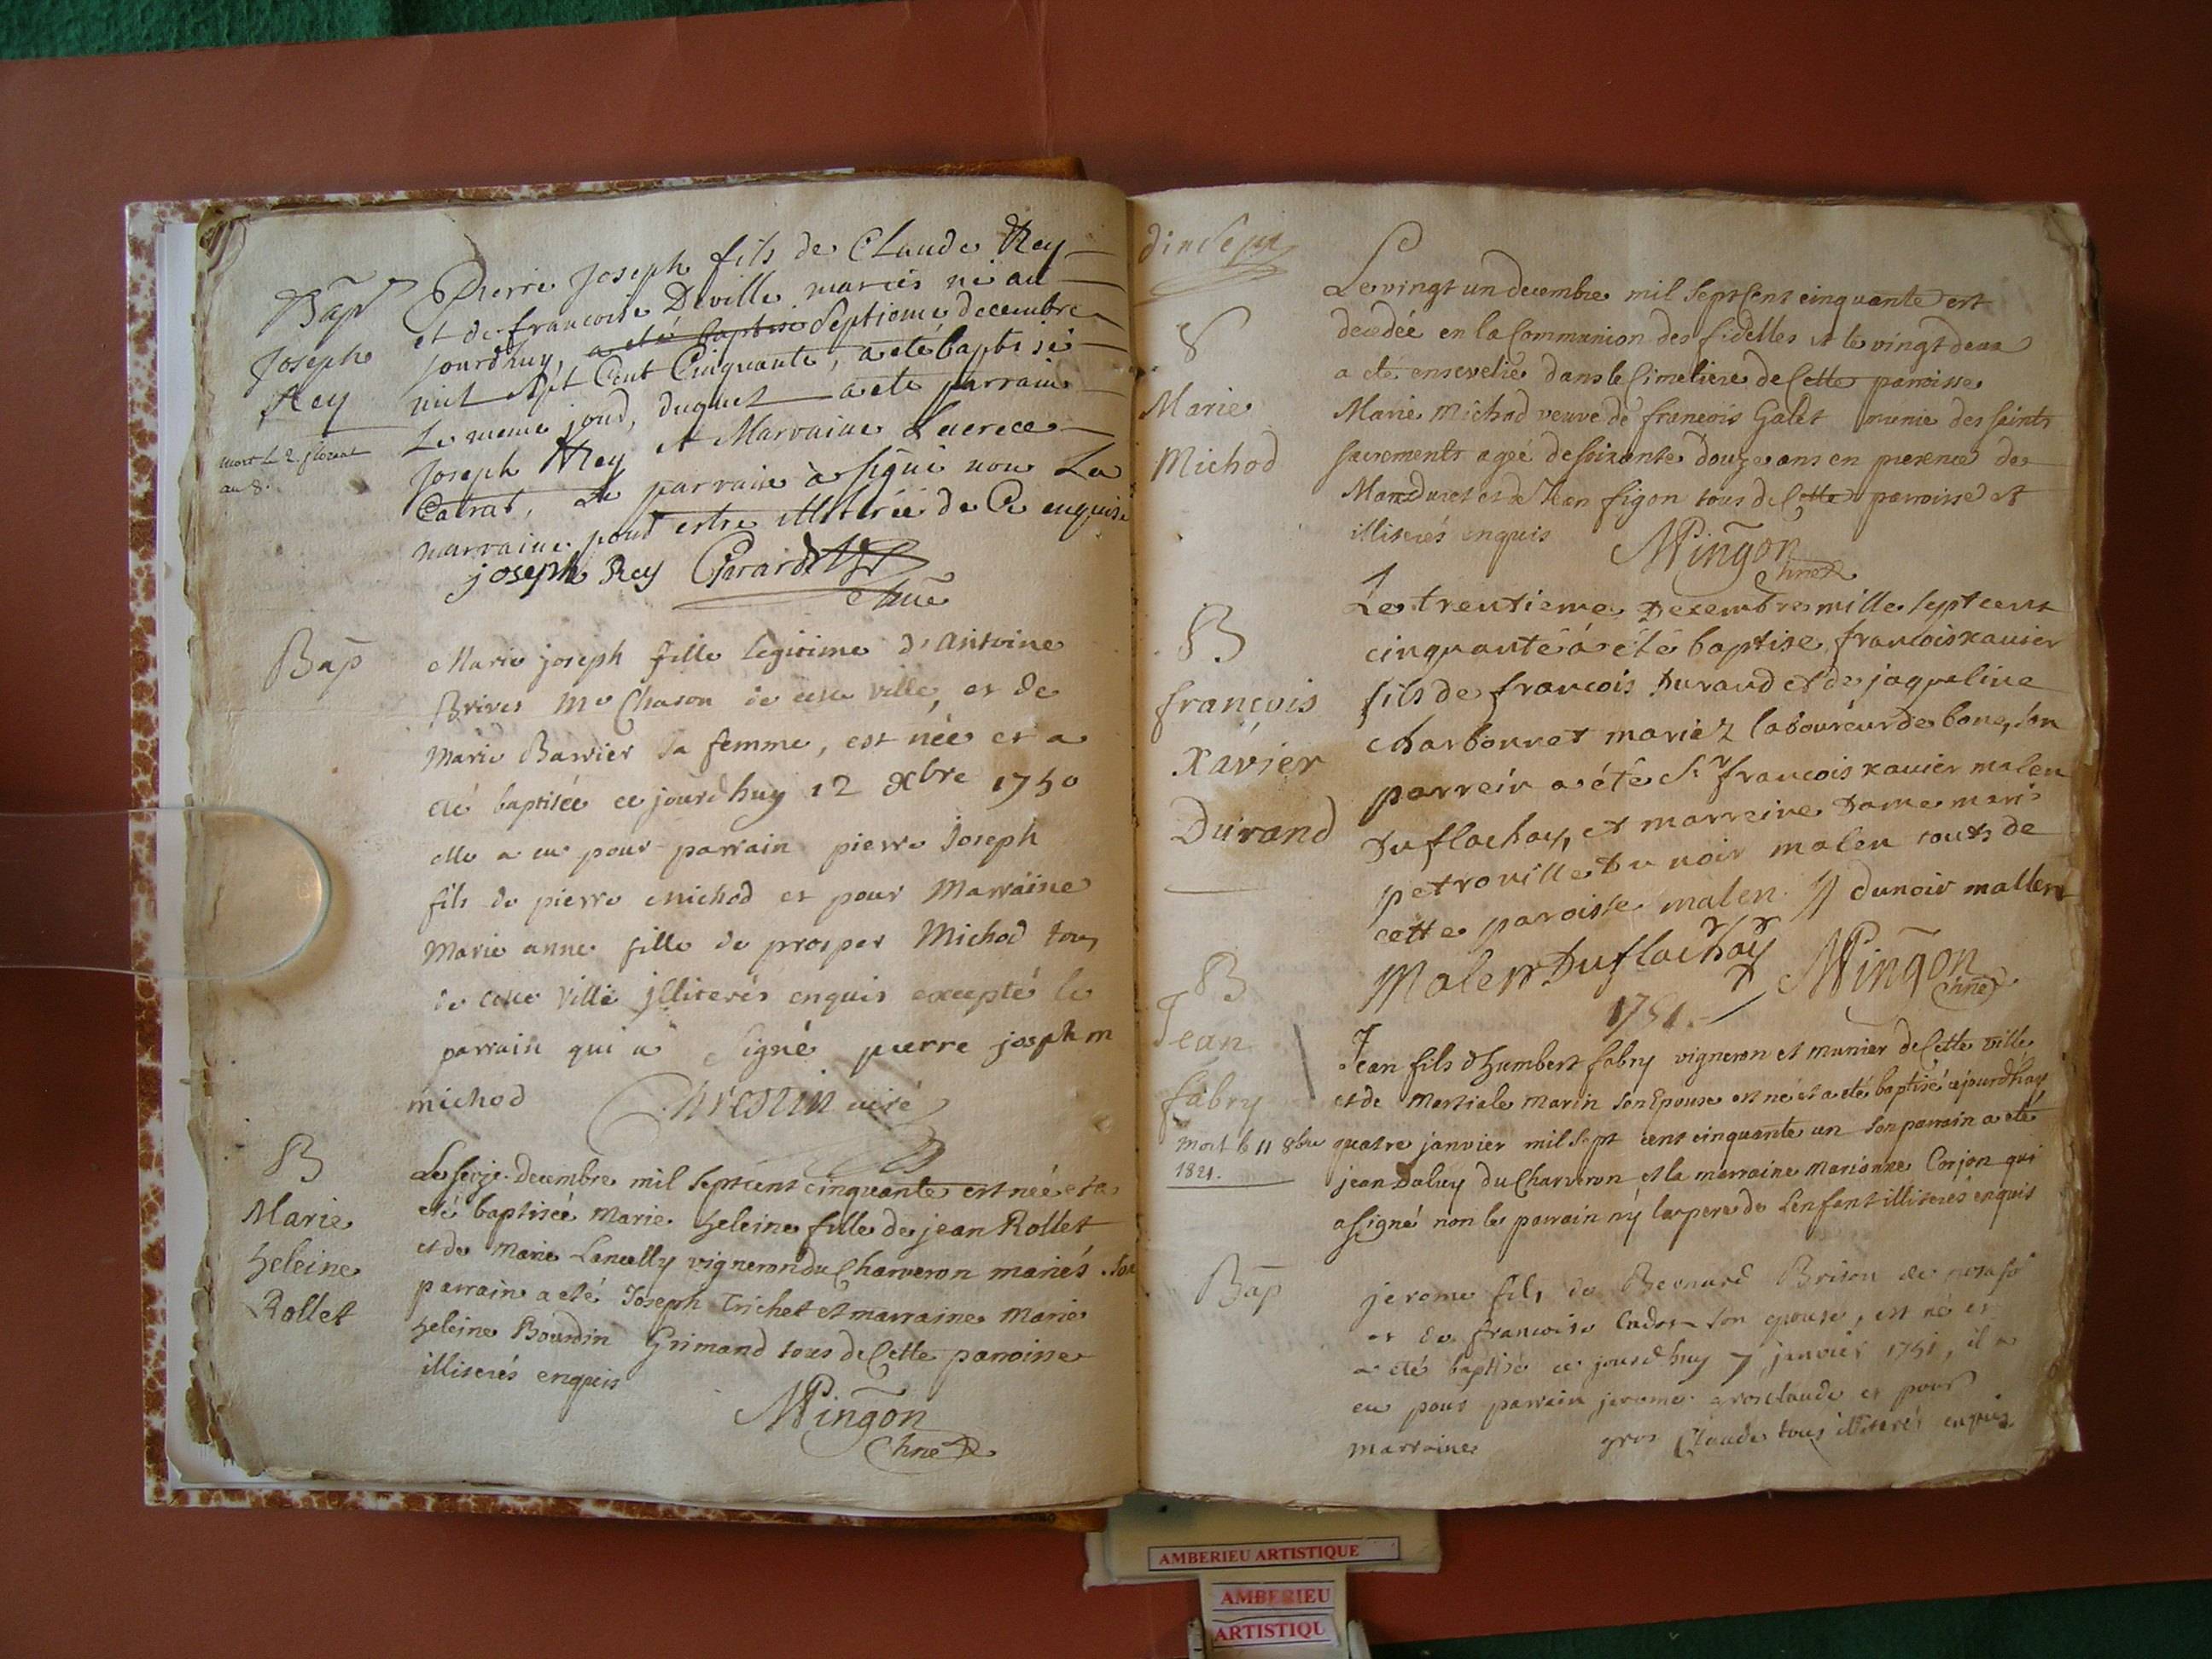 Bap
Joseph
Rey
mort le 2. floreal
an 8.
Pierre Joseph fils de Claude Rey
et de francoise Deville mariés né au
jourdhuy, a eté baptisé Septieme decembre
mil sept Cent Cinquante, a eté baptisé
Le meme jour, duquel a eté parrain
Joseph Rey et Marraine Lucrece
Catrat, Le parrain à signé non La
marraine pour estre illiterée de Ce enquise
joseph Rey Girardet
Chne
Bap
Marie joseph fille legitime d'Antoine
Brives Me Chason de cette ville, et de
Marie Barrier sa femme, est née et a
eté baptisée ce jourdhuy 12 Xbre 1750
elle a eu pour parrain pierre Joseph
fils de pierre Michod et pour Marraine
Marie anne fille de prosper Michod tous
de cette Ville jlliterés enquis excepté le
parrain qui a signé pierre joseph m
michod
Chrestin curé
B
Marie
heleine
Rollet
Le seize decembre mil sept cent cinquante est née et a
eté baptisée Marie heleine fille de jean Rollet
et de Marie Lancelly vigneron du Charveron mariés. Son
parrain a eté Joseph Trichet et marraine Marie
heleine Bourdin Grimand tous de Cette paroisse
illiterés enquis
MPingon
Chne
dix Sept
S
Marie
Michod
Le vingt un decembre mil Sept Cent cinquante est
decedée en la Communion des fidelles et le vingt deux
a eté ensevelie dans le Cimetiere de Cette paroisse
Marie Michod veuve de francois Galet munie des saints
sacrements agée de soixante douze ans en presence de
Manduret et de Jean figon tous de Cette paroisse et
illiterés enquis
MPingon
Chne
B
francois
Xavier
Durand
Le trentieme Decembre mille sept cent
cinquante a été baptise francois xavier
fils de francois Durand et de jaqueline
charbonnet mariez laboureur de bone, son
parrein a été Sr francois xavier malen
Du flachay, et marreine Dame marie
petroville Du noir malen touts de
cette paroisse malen Dunoir mallen
Malen Duflachay MPingon
Chne
1751.
B
Jean
fabry
mort le 11 8bre
1821.
Jean fils d'humbert fabry vigneron et munier de Cette ville
et de Martiale Marin son Epouse est né et a eté baptisé cejourdhuy
quatre janvier mil Sept cent cinquante un son parrain a eté
jean Daluy du Charveron et la marraine Marianne Corjon qui
a signé non le parrain ny le pere de Lenfant illiterés enquis
Bap
jerome fils de Bernard Brison de
et de francoise Cudet son epouse, est né et
a eté baptisé ce jourdhuy 7 janvier 1751, il a
eu pour parrain jerome grosclaude et pour
marraine gros Claude tous illiterés enquis
AMBERIEU ARTISTIQUE
AMBERIEU
ARTISTIQU